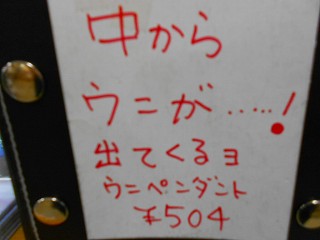 中から
ウニが.....!
出てくるヨ
ウニペンダント
¥504